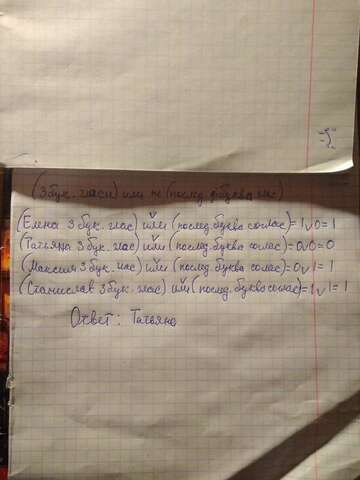 (3 бук. гласн) или не (послед. буква глас)
(Елена 3 бук. глас) или (послед. буква соглас) = 1 v 0 = 1
(Татьяна 3 бук. глас) или (послед. буква соглас) = 0 v 0 = 0
(Максим 3 бук. глас) или (послед. буква соглас) = 0 v 1 = 1
(Станислав 3 бук. глас) или (послед. буква соглас) = 1 v 1 = 1
Ответ: Татьяна